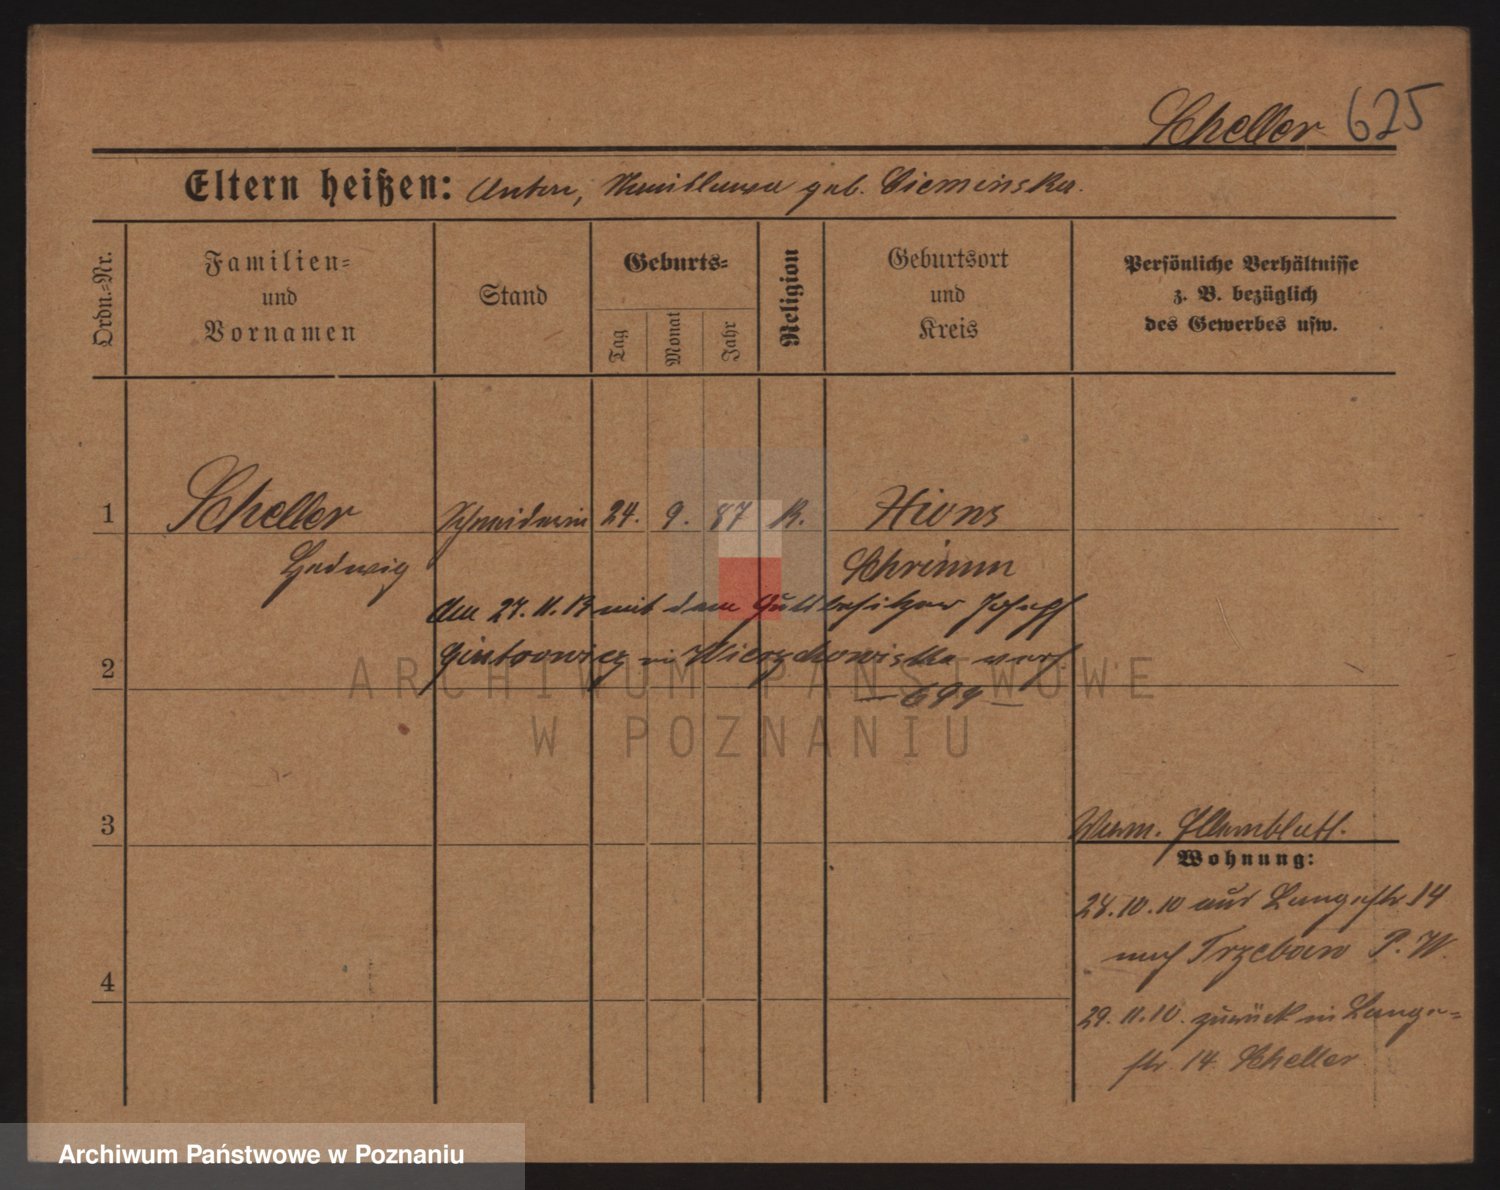 Scheller 625
Eltern heißen: Anton, Stanislawa geb. Ciemińska.
Ordn.-Nr.
Familien-
und
Vornamen
Stand
Geburts-
Tag
Monat
Jahr
Religion
Geburtsort
und
Kreis
Persönliche Verhältnisse
z. B. bezüglich
des Gewerbes usw.
1 Scheller Schneiderin 24. 9. 87 K. Xions
Hedwig Schrimm
Am 27.11.13 mit dem Gutsbesitzer Joseph
in verh.
2
— 699 —
ARCHIWUM PAŃSTWOWE
W POZNANIU
3
Wohnung:
28.10.10 aus Langestr. 14
nach Trzebaw P. W.
4
29.11.10. zurück in Lange-
str. 14. Scheller
Archiwum Państwowe w Poznaniu